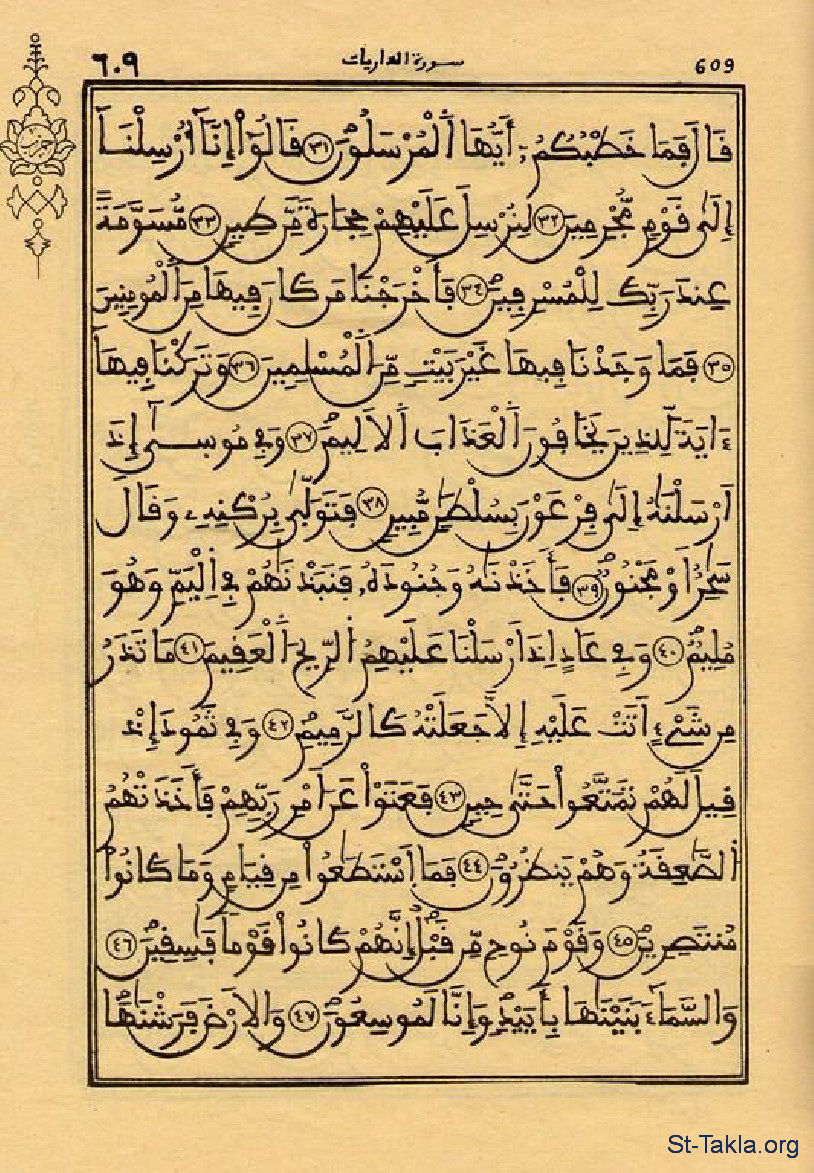 ٦٠٩ سورة الذاريات 609
حزب
قَالَ فَمَا خَطْبُكُمُۥٓ أَيُّهَا اَلْمُرْسَلُونَ ٣١ قَالُوٓاْ إِنَّآ أُرْسِلْنَآ
إِلَىٰ قَوْمٍ مُّجْرِمِينَ ٣٢ لِنُرْسِلَ عَلَيْهِمْ حِجَارَةً مِّن طِينٍ ٣٣ مُّسَوَّمَةً
عِندَ رَبِّكَ لِلْمُسْرِفِينَ ٣٤ فَأَخْرَجْنَا مَن كَانَ فِيهَا مِنَ اَلْمُومِنِينَ
٣٥ فَمَا وَجَدْنَا فِيهَا غَيْرَ بَيْتٍ مِّنَ اَلْمُسْلِمِينَ ٣٦ وَتَرَكْنَا فِيهَآ
ءَايَةً لِّلذِينَ يَخَافُونَ اَلْعَذَابَ اَلَالِيمَ ٣٧ وَفِي مُوسىٰٓ إِذَ
اَرْسَلْنَٰهُ إِلَىٰ فِرْعَوْنَ بِسُلْطَٰنٍ مُّبِينٍ ٣٨ فَتَوَلَّىٰ بِرُكْنِهِۦ وَقَالَ
سَٰحِرٌ اَوْ مَجْنُونٌ ٣٩ فَأَخَذْنَٰهُ وَجُنُودَهُۥ فَنَبَذْنَٰهُمْ فِي اِلْيَمِّ وَهُوَ
مُلِيمٌ ٤٠ وَفِي عَادٍ اِذَ اَرْسَلْنَا عَلَيْهِمُ اُلرِّيحَ اَلْعَقِيمَ ٤١ مَا تَذَرُ
مِن شَيْءٍ اَتَتْ عَلَيْهِ إِلَّا جَعَلَتْهُ كَالرَّمِيمِ ٤٢ وَفِي ثَمُودَ إِذْ
قِيلَ لَهُمْ تَمَتَّعُواْ حَتَّىٰ حِينٍ ٤٣ فَعَتَوْاْ عَنَ اَمْرِ رَبِّهِمْ فَأَخَذَتْهُمُ
اُلصَّٰعِقَةُ وَهُمْ يَنظُرُونَ ٤٤ فَمَا اَسْتَطَٰعُواْ مِن قِيَامٍ وَمَا كَانُواْ
مُنتَصِرِينَ ٤٥ وَقَوْمَ نُوحٍ مِّن قَبْلُ إِنَّهُمْ كَانُواْ قَوْماً فَٰسِقِينَ ٤٦
وَالسَّمَآءَ بَنَيْنَٰهَا بِأَييْدٍ وَإِنَّا لَمُوسِعُونَ ٤٧ وَالَارْضَ فَرَشْنَٰهَا
St-Takla.org